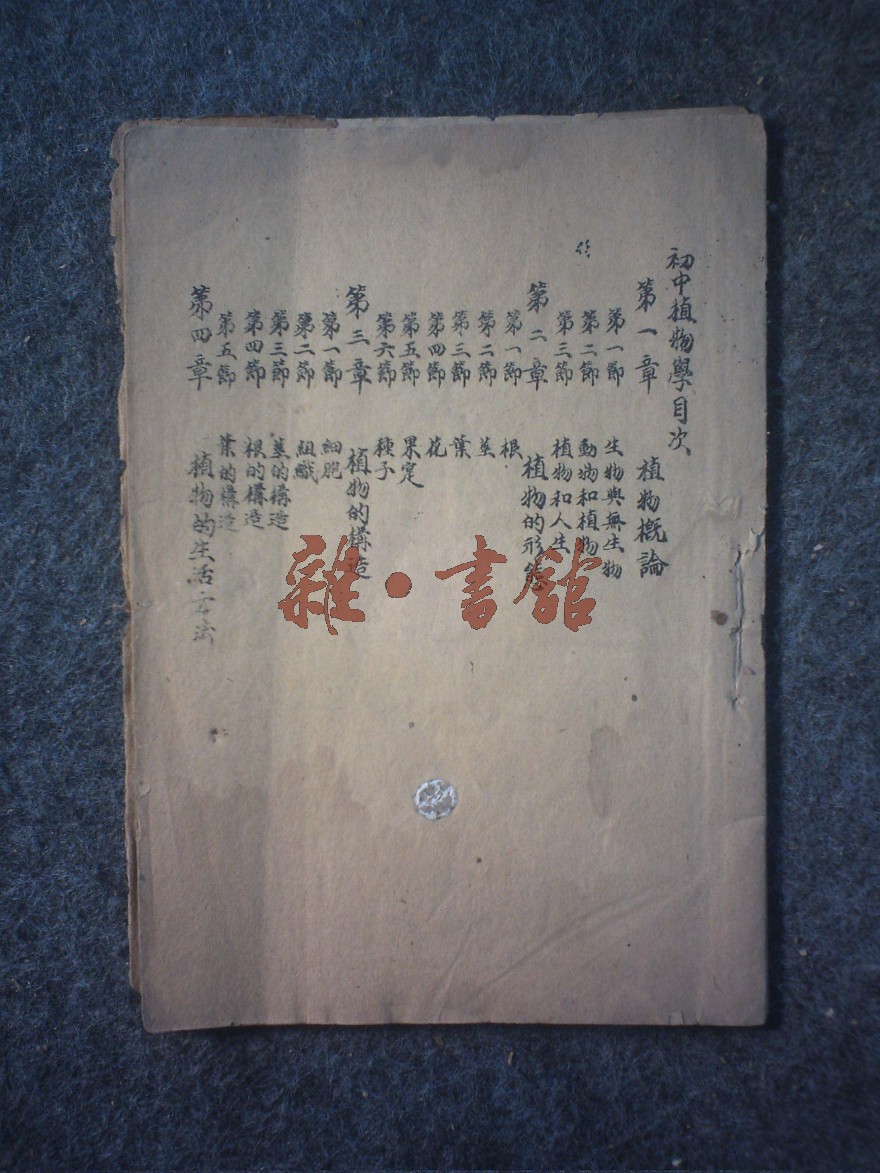 初中植物學目次
第一章 植物概論
第一節 生物與無生物
第二節 動物和植物
第三節 植物和人生
第二章 植物的形態
第一節 根
第二節 莖
第三節 葉
第四節 花
第五節 果実
第六節 種子
第三章 植物的構造
第一節 細胞
第二節 組織
第三節 莖的構造
第四節 根的構造
第五節 葉的構造
第四章 植物的生活方法
雜·書館